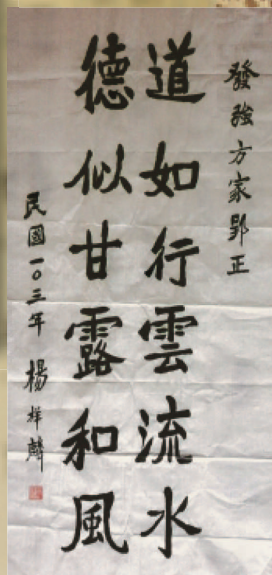 發強方家郢正
道如行雲流水
德似甘露和風
民國一〇三年 楊祥麟